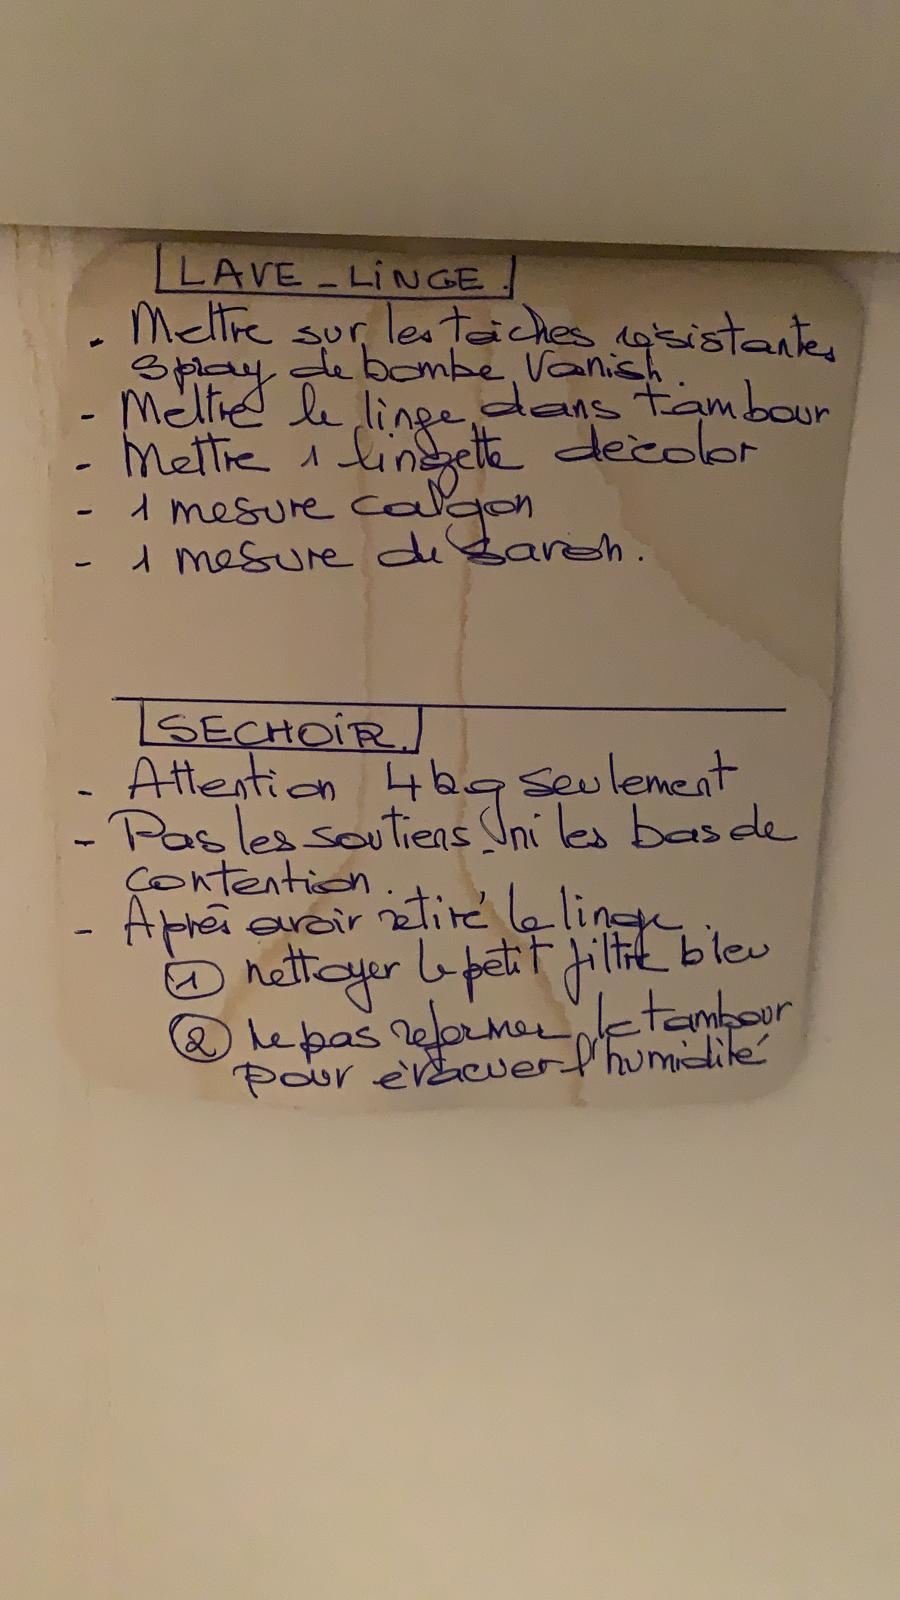 LAVE-LINGE.
- Mettre sur les taiches résistantes
spray de bombe Vanish.
- Mettre le linge dans tambour
- Mettre 1 lingette décolor
- 1 mesure calgon
- 1 mesure de
SECHOIR.
- Attention 4 kg seulement
- Pas les soutiens ni les bas de
contention.
- Après avoir retiré le linge
① nettoyer le petit filtre bleu
② Ne pas refermer le tambour
pour évacuer l'humidité